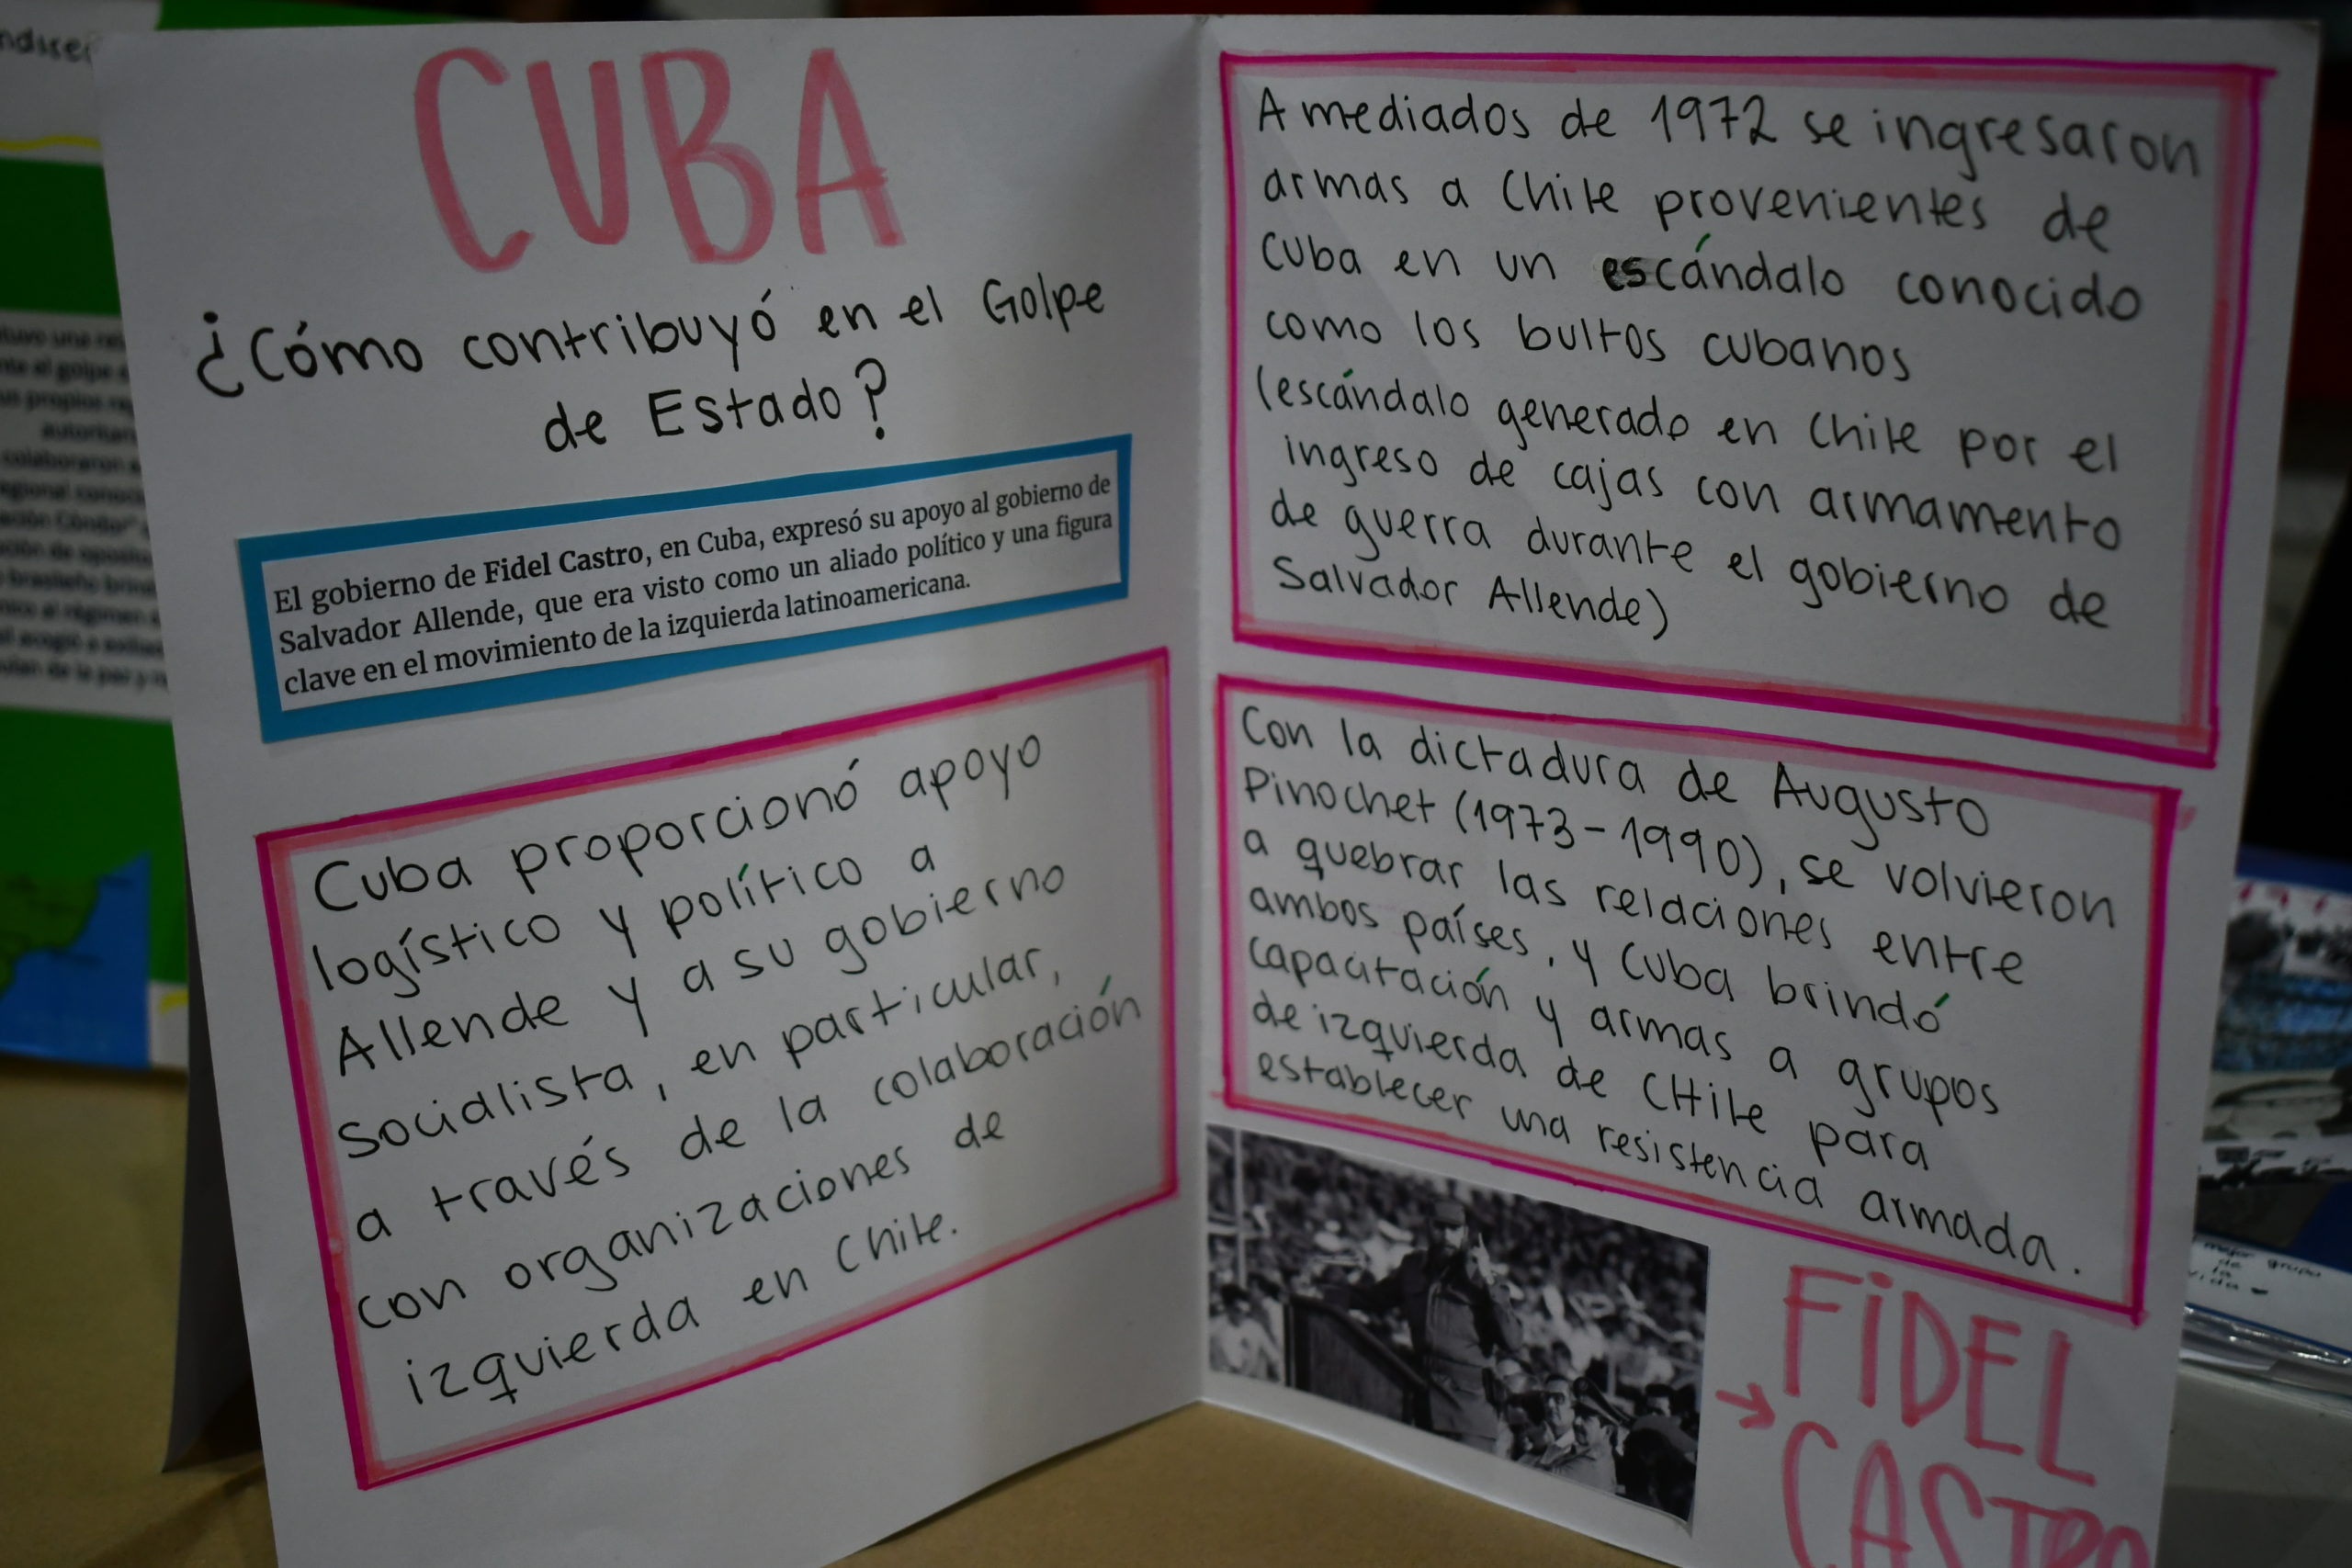 CUBA
¿Cómo contribuyó en el Golpe
de Estado?
El gobierno de Fidel Castro, en Cuba, expresó su apoyo al gobierno de
Salvador Allende, que era visto como un aliado político y una figura
clave en el movimiento de la izquierda latinoamericana.
Cuba proporcionó apoyo
logístico y político a
Allende y a su gobierno
Socialista, en particular,
a través de la colaboración
con organizaciones de
izquierda en Chile.
A mediados de 1972 se ingresaron
armas a Chile provenientes de
Cuba en un escándalo conocido
como los bultos cubanos
(escándalo generado en Chile por el
ingreso de cajas con armamento
de guerra durante el gobierno de
Salvador Allende)
Con la dictadura de Augusto
Pinochet (1973-1990), se volvieron
a quebrar las relaciones entre
ambos países, y Cuba brindó
capacitación y armas a grupos
de izquierda de CHile para
establecer una resistencia armada.
→ FiDEL
CASTRO